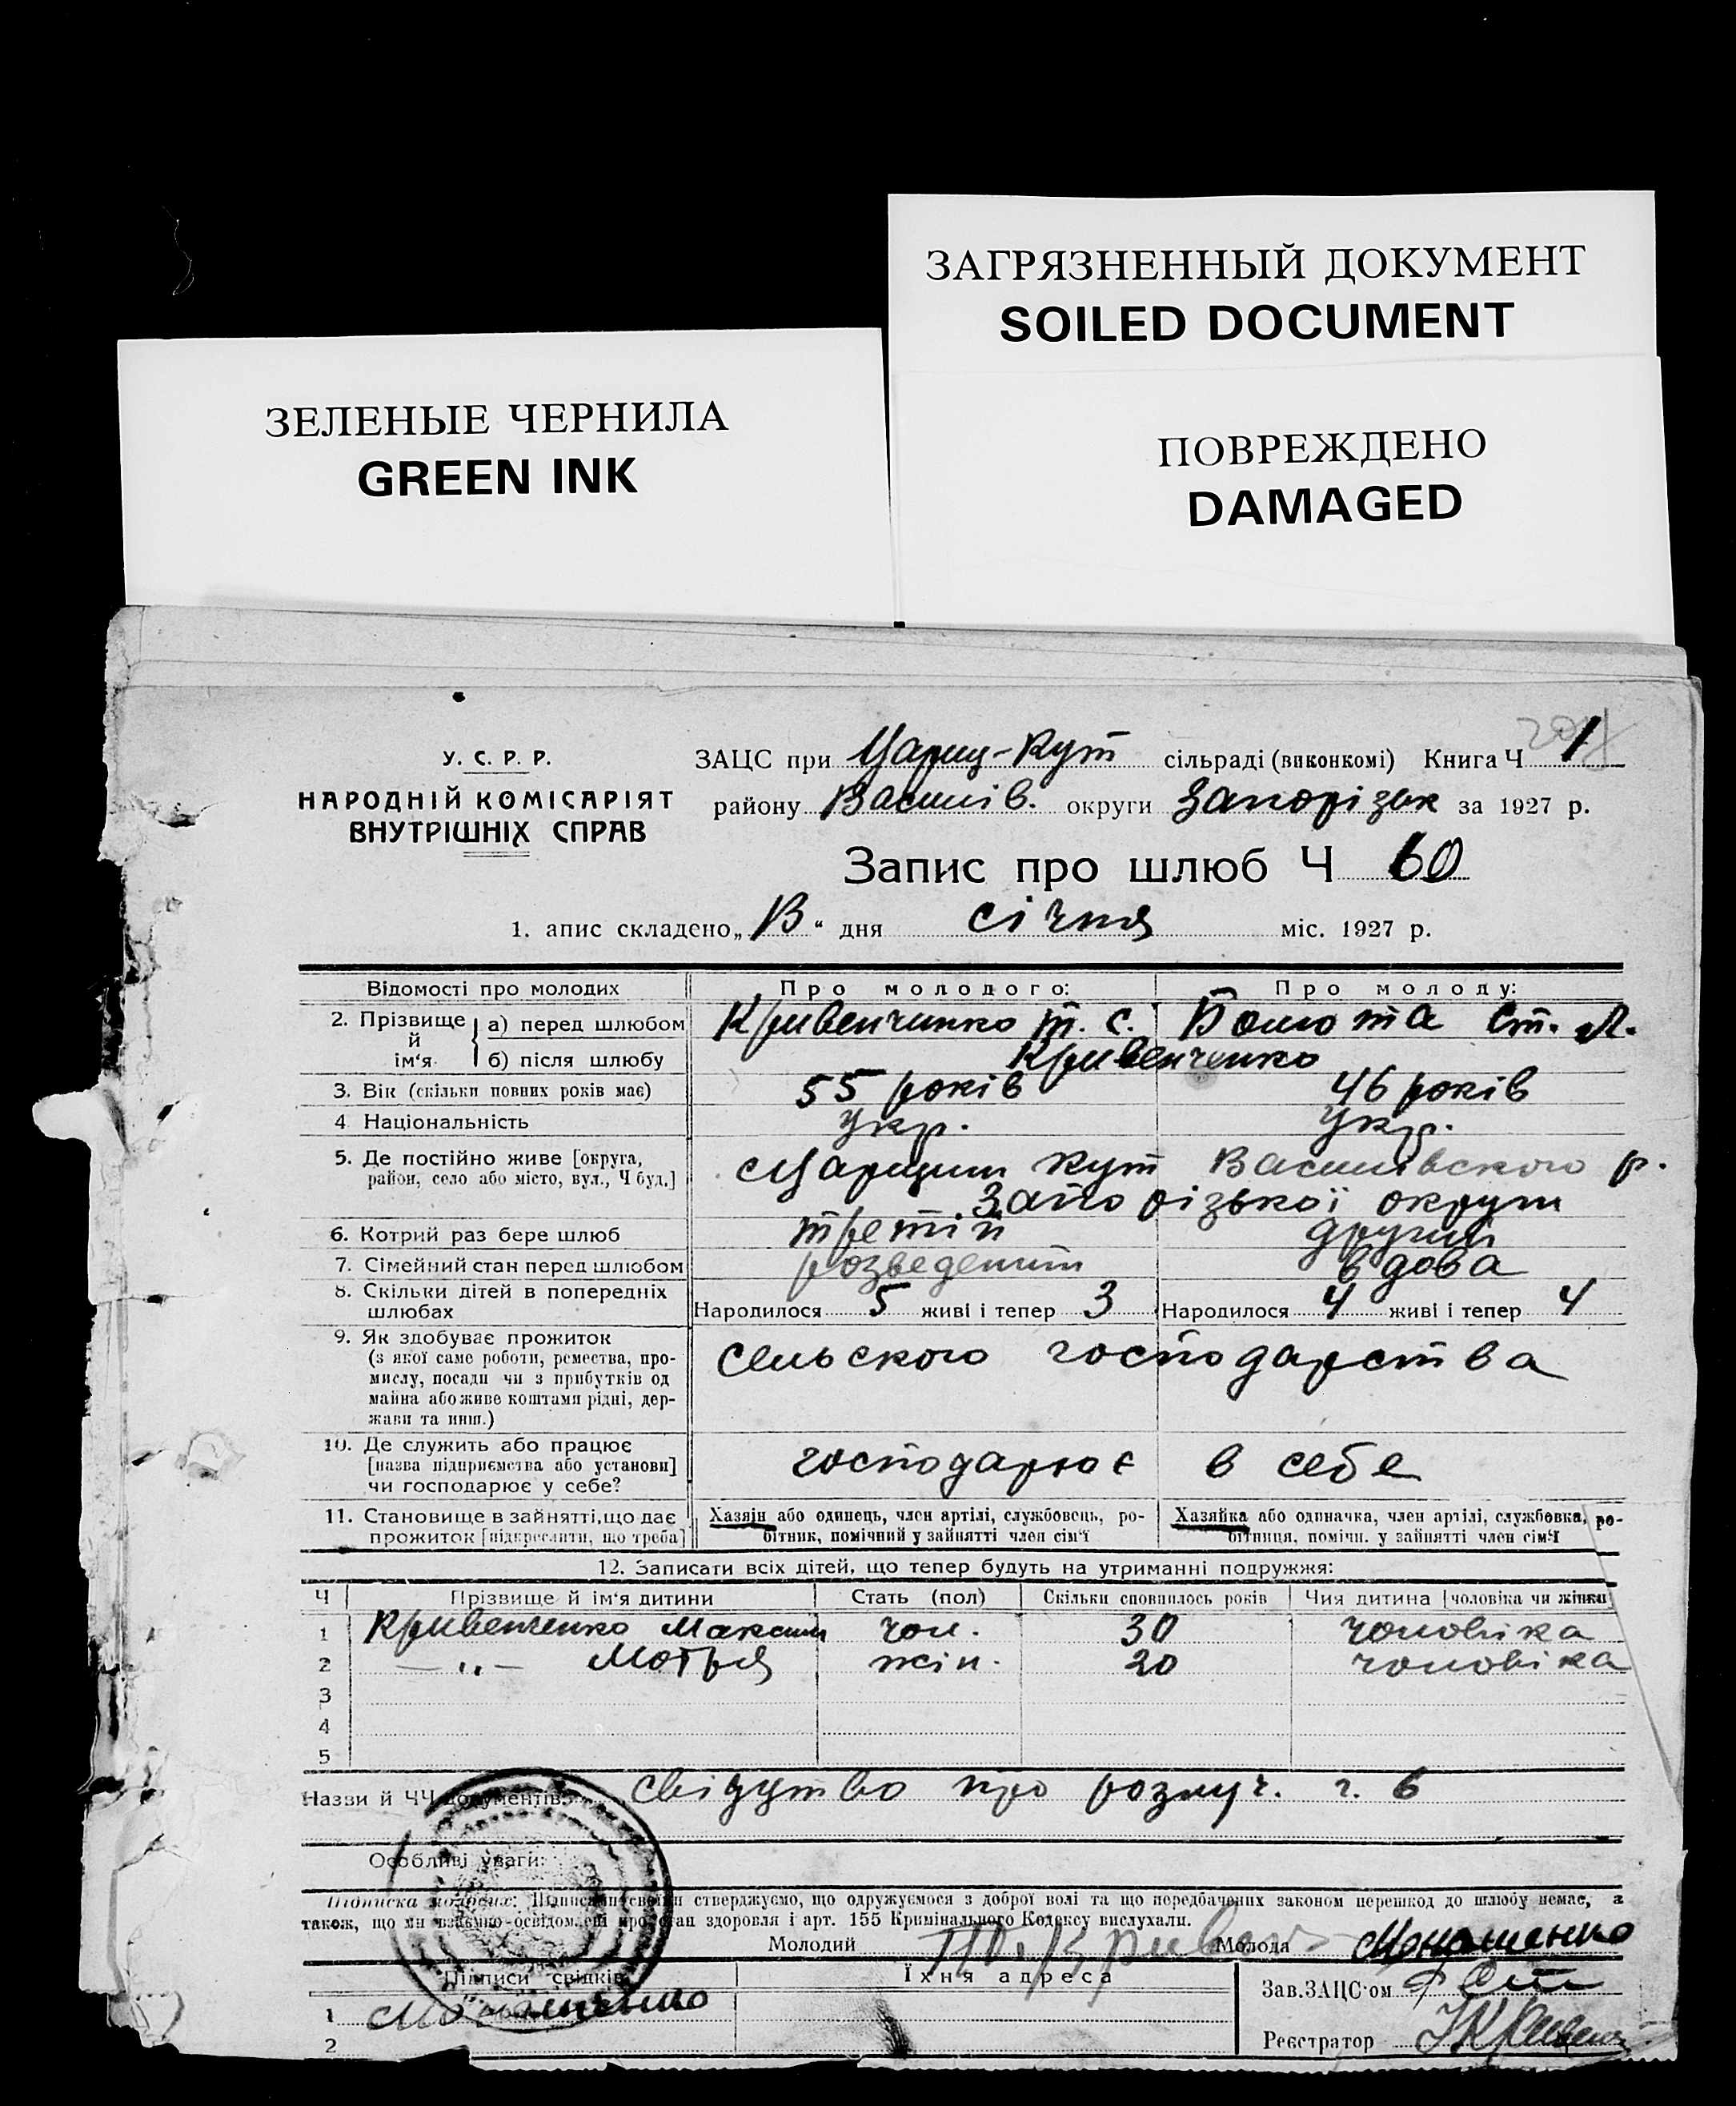 ЗАГРЯЗНЕННЫЙ ДОКУМЕНТ
SOILED DOCUMENT
ЗЕЛЕНЫЕ ЧЕРНИЛА
GREEN INK
ПОВРЕЖДЕНО
DAMAGED
У. С. Р. Р.
НАРОДНІЙ КОМІСАРІЯТ
ВНУТРІШНІХ СПРАВ
ЗАЦС при Цариц-Кут сільраді (виконкомі) Книга Ч 1
району Василів. округи Запорізьк за 1927 р.
Запис про шлюб Ч 60
1. апис складено „ “ дня січня міс. 1927 р.
Відомості про молодих Про молодого: Про молоду:
2. Прізвище й ім'я а) перед шлюбом Кривенченко Т. С. Ст. Л.
б) після шлюбу Кривенченко
3. Вік (скільки повних років має) 55 років 46 років
4 Національність Укр. Укр.
5. Де постійно живе [округа, район, село або місто, вул., Ч буд.] Царицин Кут Василівского р.
Запорізької округи
6. Котрий раз бере шлюб третій другий
7. Сімейний стан перед шлюбом вдова
8. Скільки дітей в попередніх шлюбах Народилося 5 живі і тепер 3 Народилося 4 живі і тепер 4
9. Як здобуває прожиток сельского господарства
(з якої саме роботи, ремества, про-
мислу, посади чи з прибутків од
майна або живе коштами рідні, дер-
жави та инш.)
10. Де служить або працює
[назва підприємства або установи] господарює в себе
чи господарює у себе?
11. Становище в зайнятті, що дає прожиток [підкреслити, що треба] Хазяїн або одинець, член артілі, службовець, ро-
бітник, помічний у зайнятті член сім'ї Хазяйка або одиначка, член артілі, службовка, ро-
бітниця, помічн. у зайнятті член сім'ї
12. Записати всіх дітей, що тепер будуть на утриманні подружжя:
Ч Прізвище й ім'я дитини Стать (пол) Скільки сповнилось років Чия дитина [чоловіка чи жінки]
1 Кривенченко Максим чол. 30 чоловіка
2 — „ — Мотря жін. 20 чоловіка
3
4
5
Назви й ЧЧ документів: свідутво про розлуч. ч. 6
Особливі уваги:
Підписка молодих: Підписами своїми стверджуємо, що одружуємося з доброї волі та що передбачених законом перешкод до шлюбу немає, а
також, що ми взаємно-освідомлені про стан здоровля і арт. 155 Кримінального Кодексу вислухали.
Молодий Молода
Підписи свідків Їхня адреса Зав. ЗАЦС'ом
1
2 Реєстратор